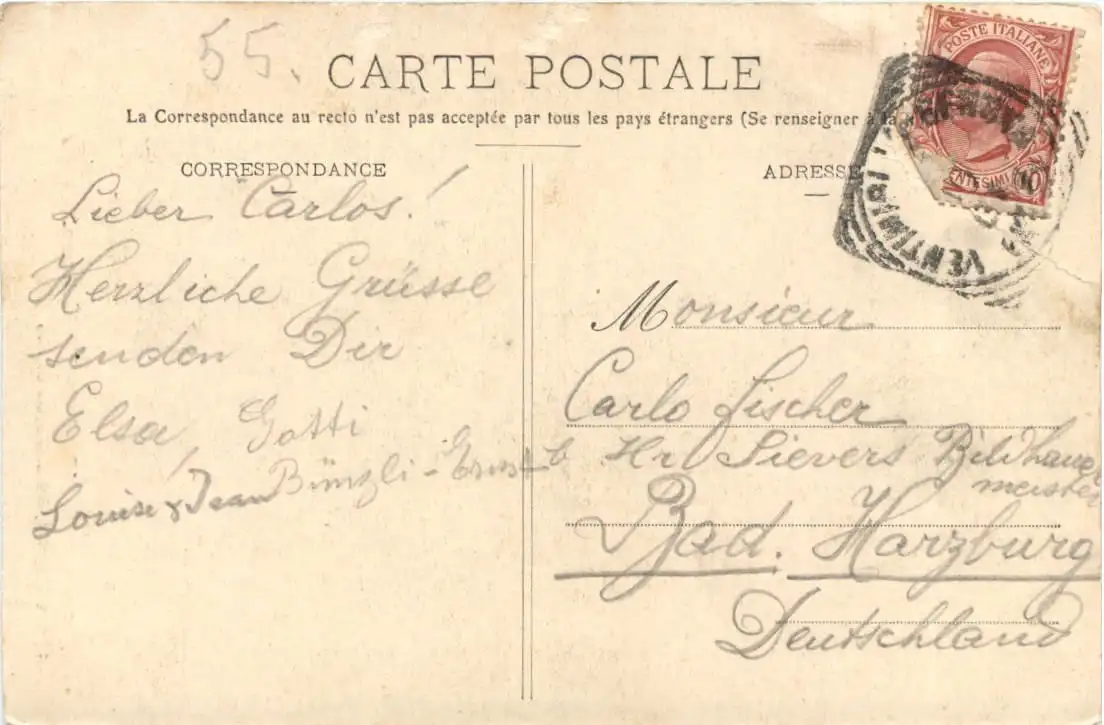 55.
CARTE POSTALE
La Correspondance au recto n'est pas acceptée par tous les pays étrangers (Se renseigner à la
CORRESPONDANCE
Lieber Carlos!
Herzliche Grüsse
senden Dir
Elsa, Gotti
Louise & Jean Bünzli-Ernst
ADRESSE
POSTE ITALIANE
VENTIMI
Monsieur
Carlo Fischer
b Hr Sievers Bildhauer
meister
Bad. Harzburg
Deutschland